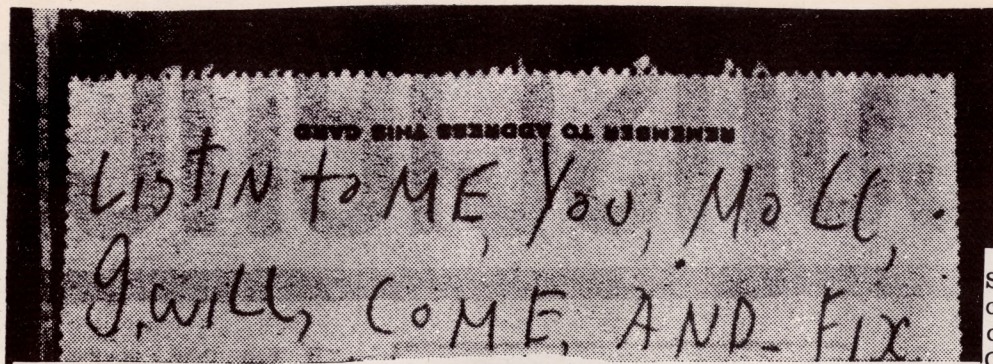 REMEMBER TO ADDRESS THIS CARD
LISTIN to ME, You, MoLL,
I, WILL, COME, AND- FIX